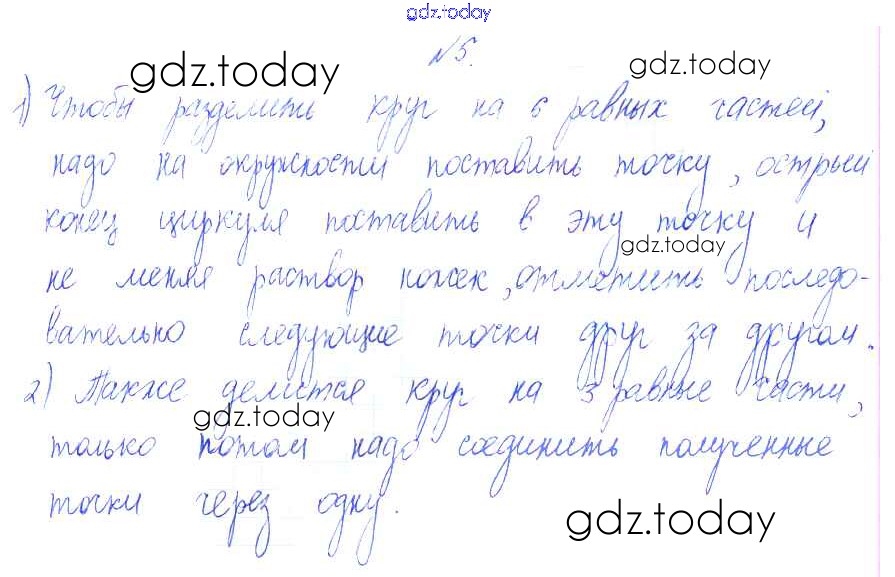 gdz.today
№5.
gdz.today gdz.today
1) Чтобы разделить круг на 6 равных частей,
надо на окружности поставить точку, острый
конец циркуля поставить в эту точку и
gdz.today
не меняя раствор ножек, отметить последо-
вательно следующие точки друг за другом.
2) Также делится круг на 3 равные части,
gdz.today
только потом надо соединить полученные
точки через одну.
gdz.today